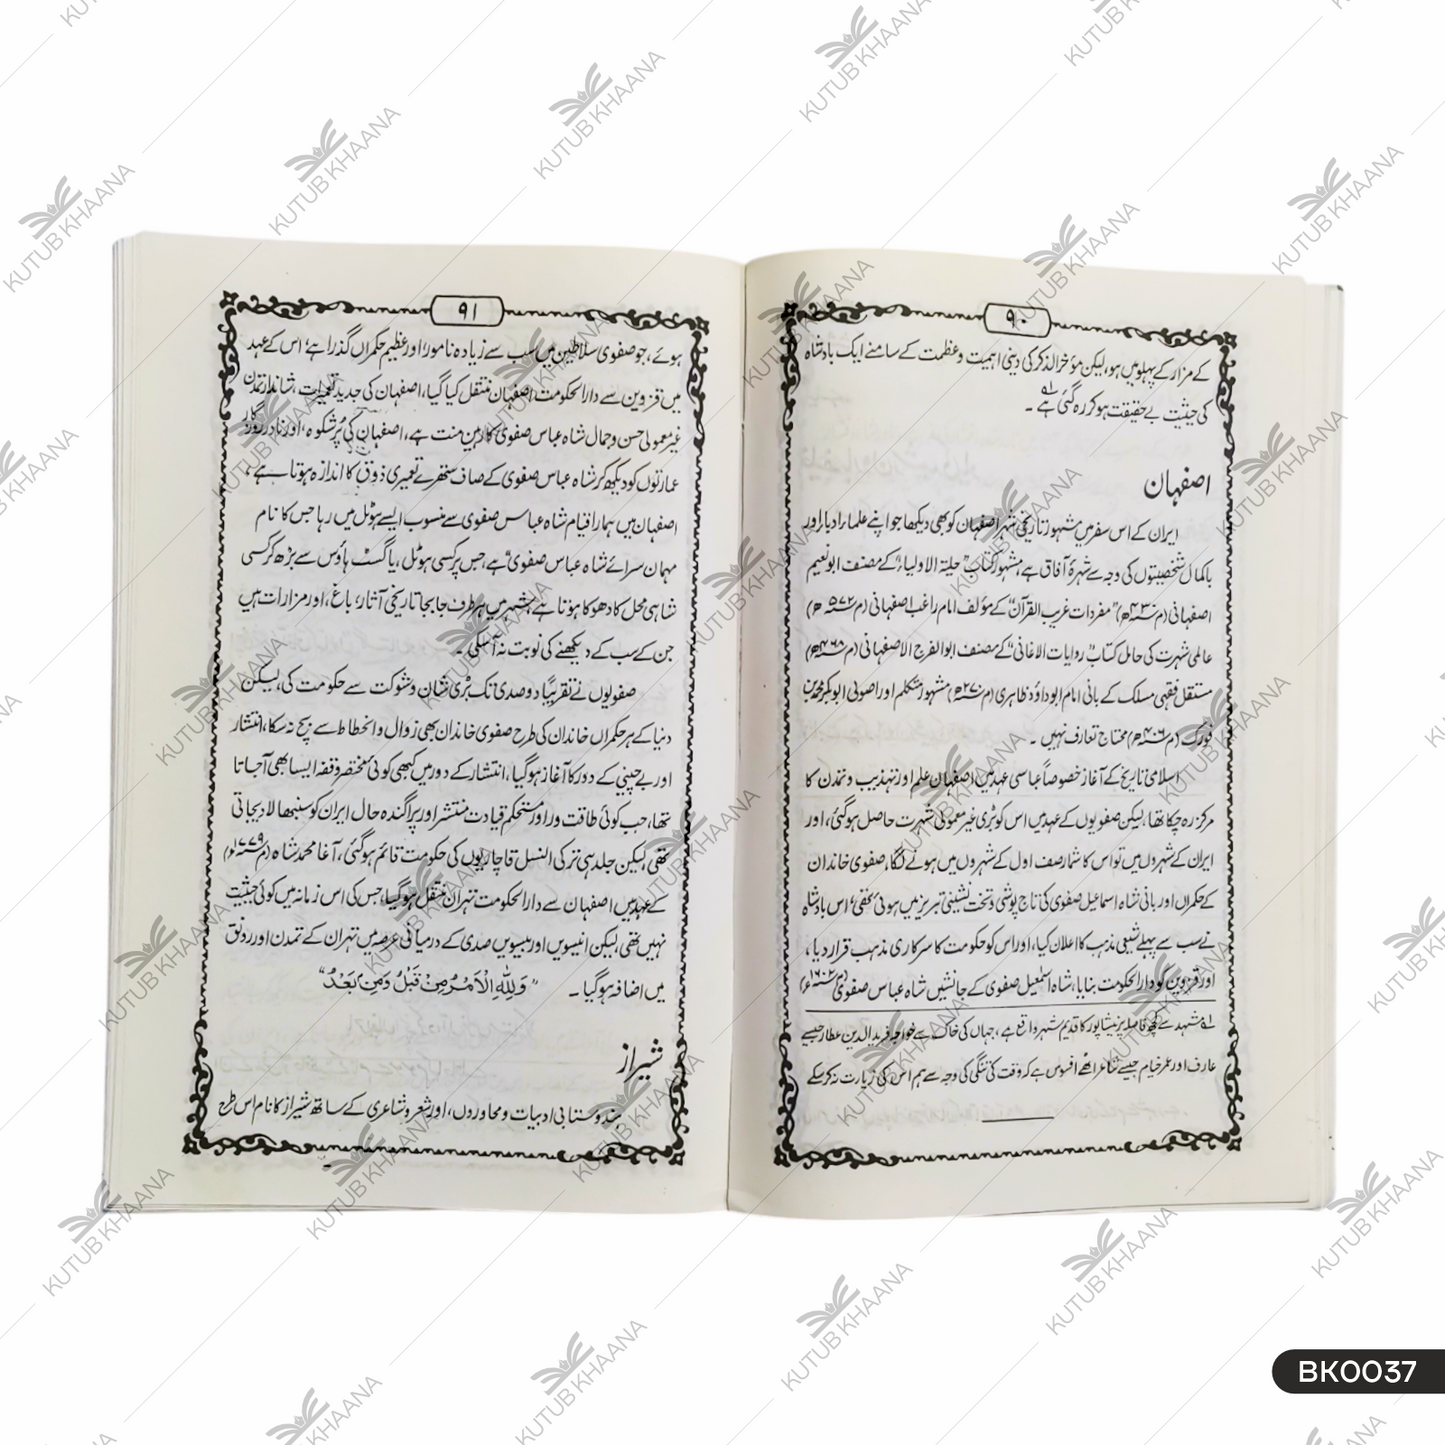 ۹۰
کے مزار کے پہلو میں ہو، لیکن مؤخر الذکر کی دینی اہمیت و عظمت کے سامنے ایک بادشاہ
کی حیثیت بے حقیقت ہو کر رہ گئی ہے ۱؎۔
اصفہان
ایران کے اس سفر میں مشہور تاریخی شہر اصفہان کو بھی دیکھا جو اپنے علماء، ادباء اور
باکمال شخصیتوں کی وجہ سے شہرۂ آفاق ہے، مشہور کتاب "حلیۃ الاولیاء" کے مصنف ابو نعیم
اصفہانی (م ۴۳۰ھ) "مفردات غریب القرآن" کے مؤلف امام راغب اصفہانی (م ۵۷۲ھ)
عالمی شہرت کی حامل کتاب "روایات الاغانی" کے مصنف ابو الفرج الاصفہانی (م ۴۶۸ھ)
مستقل فقہی مسلک کے بانی امام ابو داؤد ظاہری (م ۲۷۰ھ) مشہور متکلم اور اصولی ابوبکر محمد بن
فورک (م ۴۰۶ھ) محتاج تعارف نہیں۔
اسلامی تاریخ کے آغاز خصوصاً عباسی عہد میں اصفہان علم اور تہذیب و تمدن کا
مرکز رہ چکا تھا، لیکن صفویوں کے عہد میں اس کو بڑی غیر معمولی شہرت حاصل ہو گئی، اور
ایران کے شہروں میں تو اس کا شمار صف اول کے شہروں میں ہونے لگا، صفوی خاندان
کے حکمراں اور بانی شاہ اسماعیل صفوی کی تاج پوشی و تخت نشینی تبریز میں ہوئی تھی، اس بادشاہ
نے سب سے پہلے شیعی مذہب کا اعلان کیا، اور اس کو حکومت کا سرکاری مذہب قرار دیا،
اور قزوین کو دار الحکومت بنایا، شاہ اسمٰعیل صفوی کے جانشیں شاہ عباس صفوی (م ۱۶۰۲ء)
۱؎ مشہد سے کچھ فاصلہ پر نیشاپور کا قدیم شہر واقع ہے، جہاں کی خاک سے خواجہ فرید الدین عطار جیسے
عارف اور عمر خیام جیسے شاعر اٹھے افسوس ہے کہ وقت کی تنگی کی وجہ سے ہم اس کی زیارت نہ کر سکے
۹۱
ہوئے، جو صفوی سلاطین میں سب سے زیادہ نامور، اور عظیم حکمراں گذرا ہے، اس کے عہد
میں قزوین سے دار الحکومت اصفہان منتقل کیا گیا، اصفہان کی جدید تعمیرات، شاندار تمدن
غیر معمولی حسن و جمال شاہ عباس صفوی کا رہین منت ہے، اصفہان کی پُر شکوہ، اور نادر روزگار
عمارتوں کو دیکھ کر شاہ عباس صفوی کے صاف ستھرے تعمیری ذوق کا اندازہ ہوتا ہے،
اصفہان میں ہمارا قیام شاہ عباس صفوی سے منسوب ایسے ہوٹل میں رہا جس کا نام
مہمان سرائے شاہ عباس صفوی" ہے، جس پر کسی ہوٹل، یا گسٹ ہاؤس سے بڑھ کر کسی
شاہی محل کا دھوکا ہوتا ہے، شہر میں ہر طرف جا بجا تاریخی آثار، باغ، اور مزارات ہیں
جن کے سب کے دیکھنے کی نوبت نہ آسکی۔
صفویوں نے تقریباً دو صدی تک بڑی شان و شوکت سے حکومت کی، لیکن
دنیا کے ہر حکمراں خاندان کی طرح صفوی خاندان بھی زوال و انحطاط سے بچ نہ سکا، انتشار
اور بے چینی کے دور کا آغاز ہو گیا، انتشار کے دور میں کبھی کوئی مختصر وقفہ ایسا بھی آجاتا
تھا، جب کوئی طاقت ور اور مستحکم قیادت منتشر اور پراگندہ حال ایران کو سنبھالا دیجاتی
تھی، لیکن جلد ہی ترکی النسل قاچاریوں کی حکومت قائم ہو گئی، آغا محمد شاہ (م ۱۷۷۹ء)
کے عہد میں اصفہان سے دار الحکومت تہران منتقل ہو گیا، جس کی اس زمانہ میں کوئی حیثیت
نہیں تھی، لیکن انیسویں اور بیسویں صدی کے درمیانی عرصہ میں تہران کے تمدن اور رونق
میں اضافہ ہو گیا۔ "وَلِلّٰہِ الْاَمْرُ مِنْ قَبْلُ وَمِنْ بَعْدُ"
شیراز
ہندوستانی ادبیات و محاوروں، اور شعر و شاعری کے ساتھ شیراز کا نام اس طرح
KUTUB KHAANA
BK0037